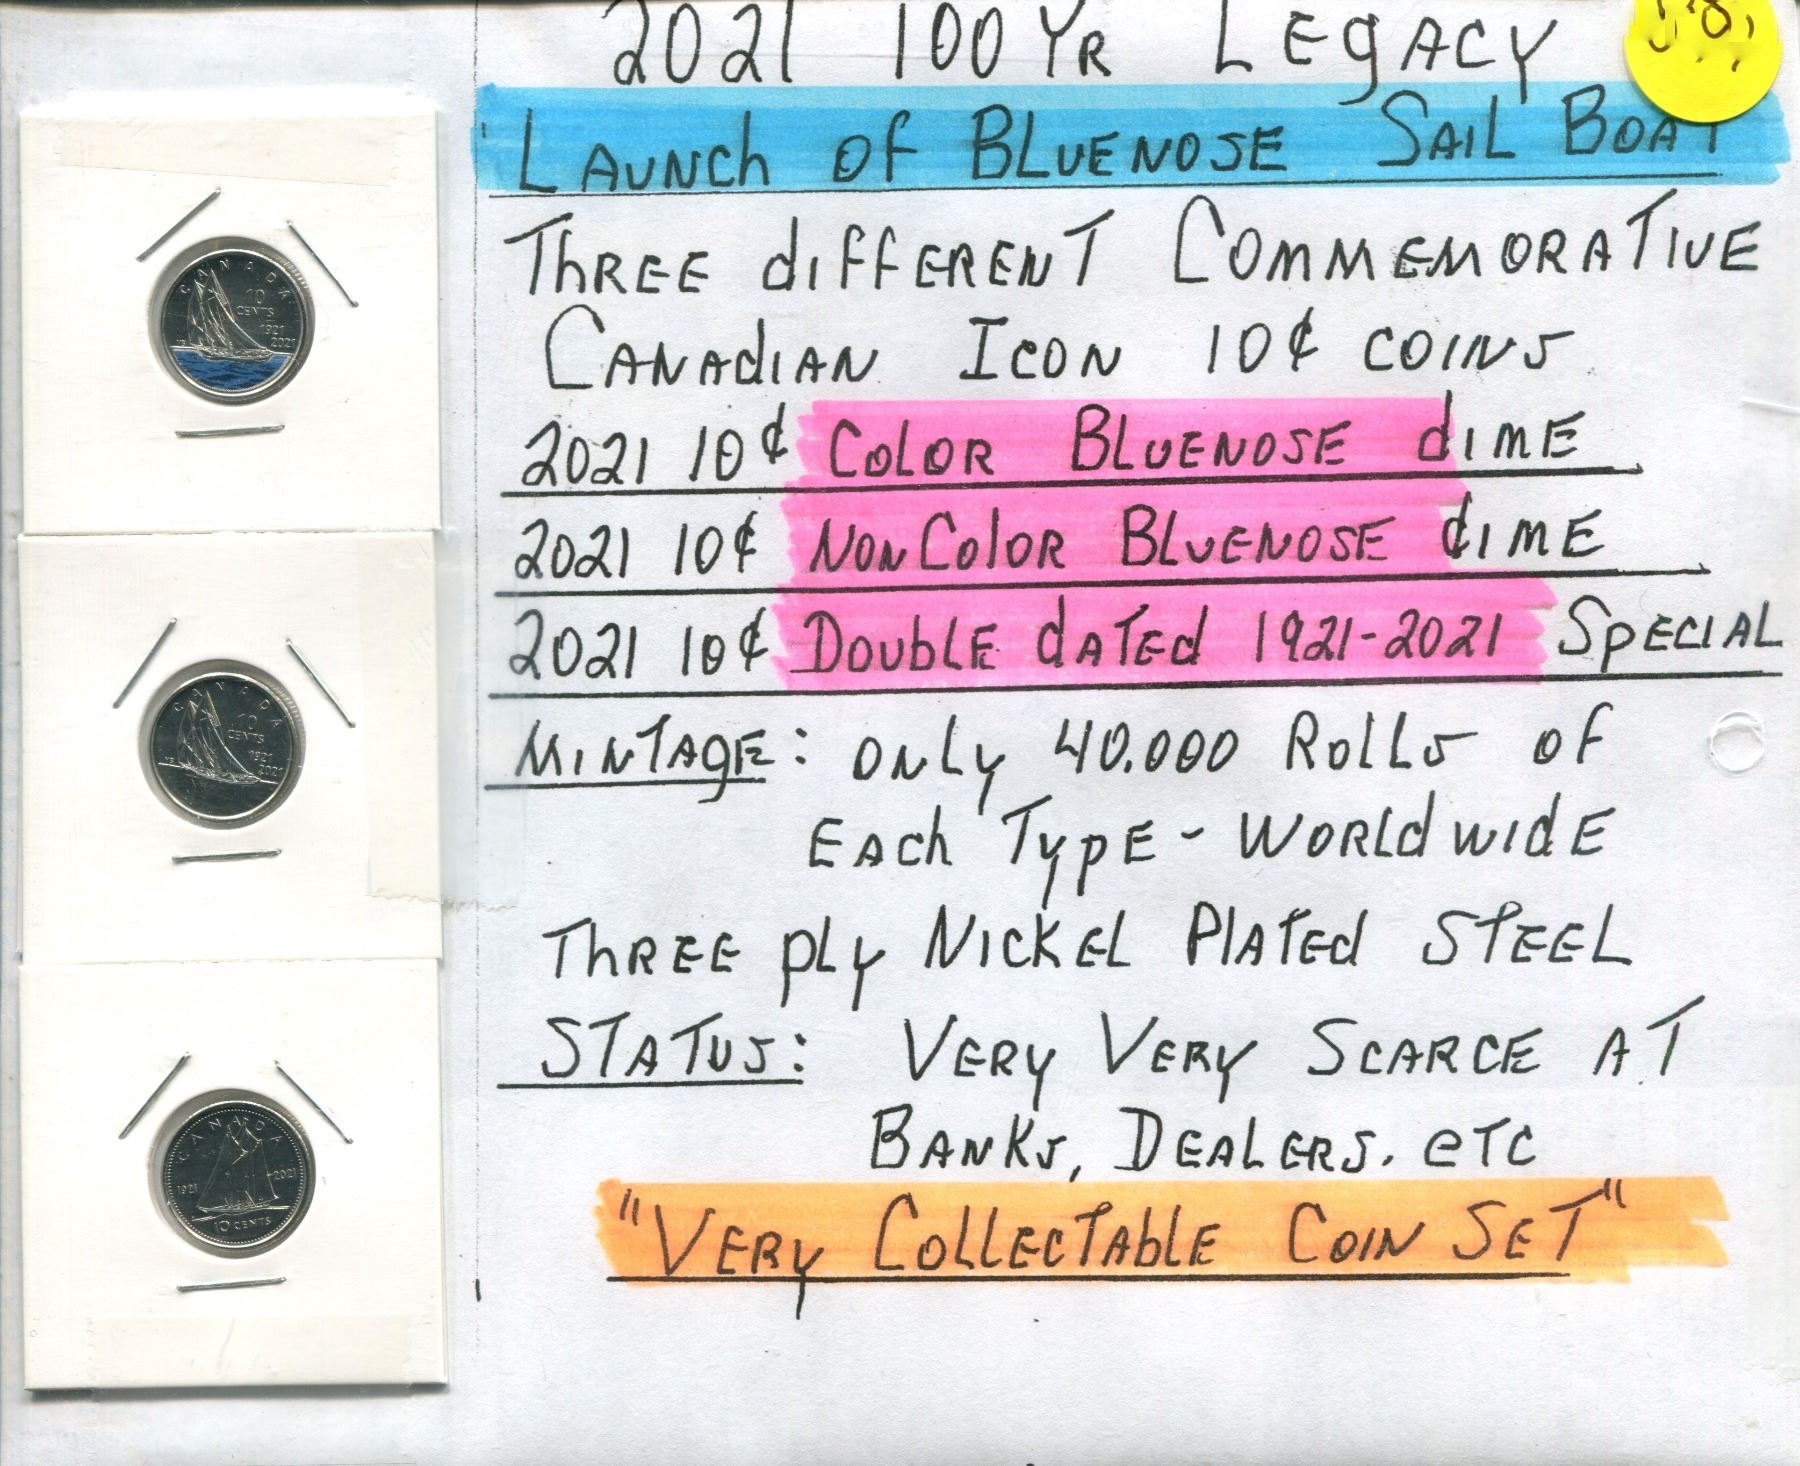 2021 100 Yr Legacy
Launch of Bluenose Sail Boat
Three different Commemorative
Canadian Icon 10¢ coins
2021 10¢ Color Bluenose dime
2021 10¢ Non Color Bluenose dime
2021 10¢ Double dated 1921-2021 Special
Mintage: only 40.000 Rolls of
Each Type - Worldwide
Three ply Nickel Plated Steel
Status: Very Very Scarce at
Banks, Dealers. etc
"Very Collectable Coin Set"
CANADA
10
CENTS
1921
2021
CANADA
10
CENTS
1921
2021
CANADA
1921
2021
10 CENTS